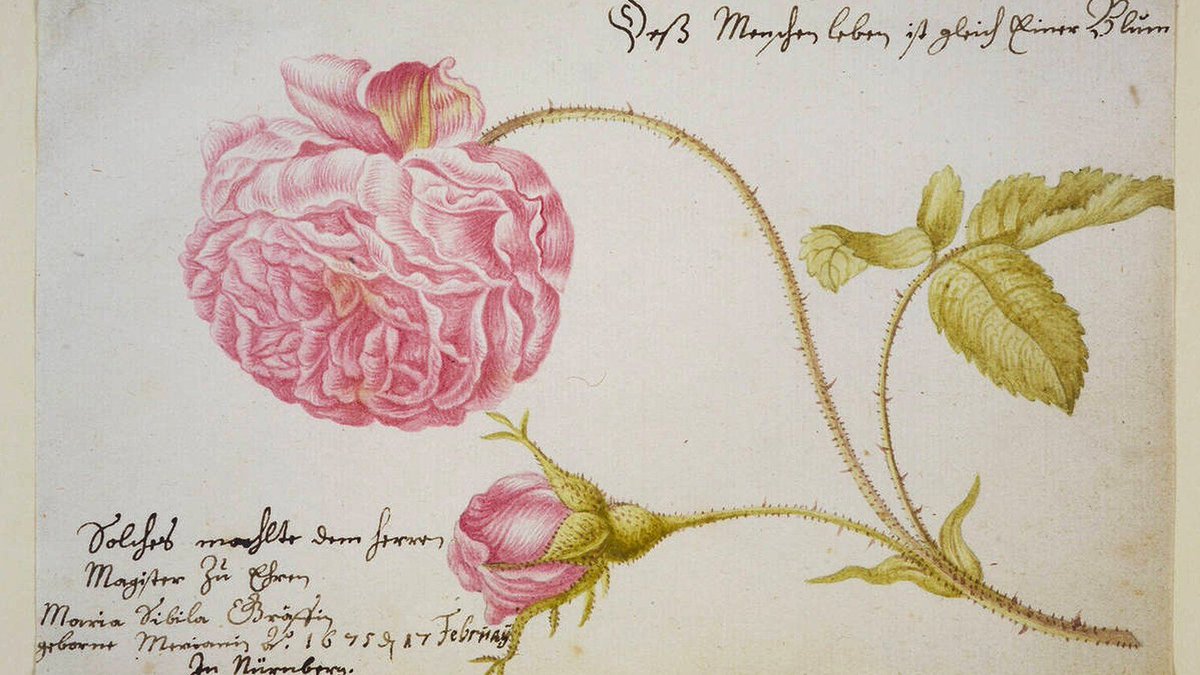 Deß Menschen leben ist gleich Einer Blum
Solches mahlte dem herren
Magister Zu Ehren
Maria Sibila Gräffin
geborne Merianin Aº. 1675 d 17 February
In Nürnberg.